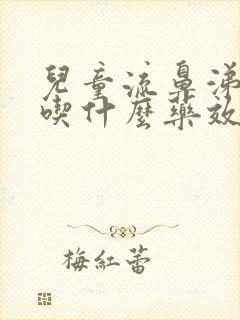 兒童流鼻涕
喫什麼藥效
梅紅蕾